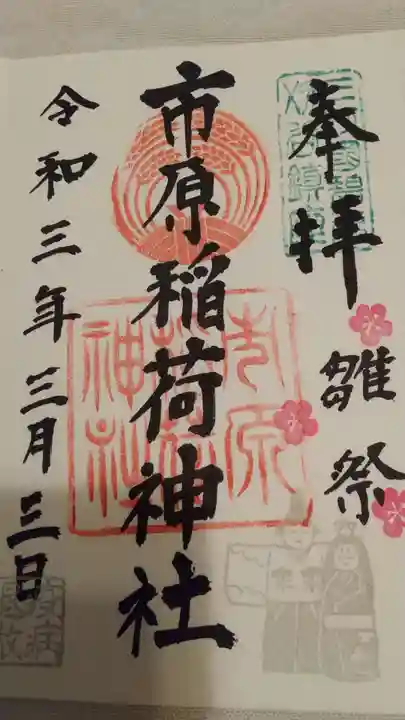 奉拝
雛祭
市原稲荷神社
市原
稲荷
神社
令和三年三月三日